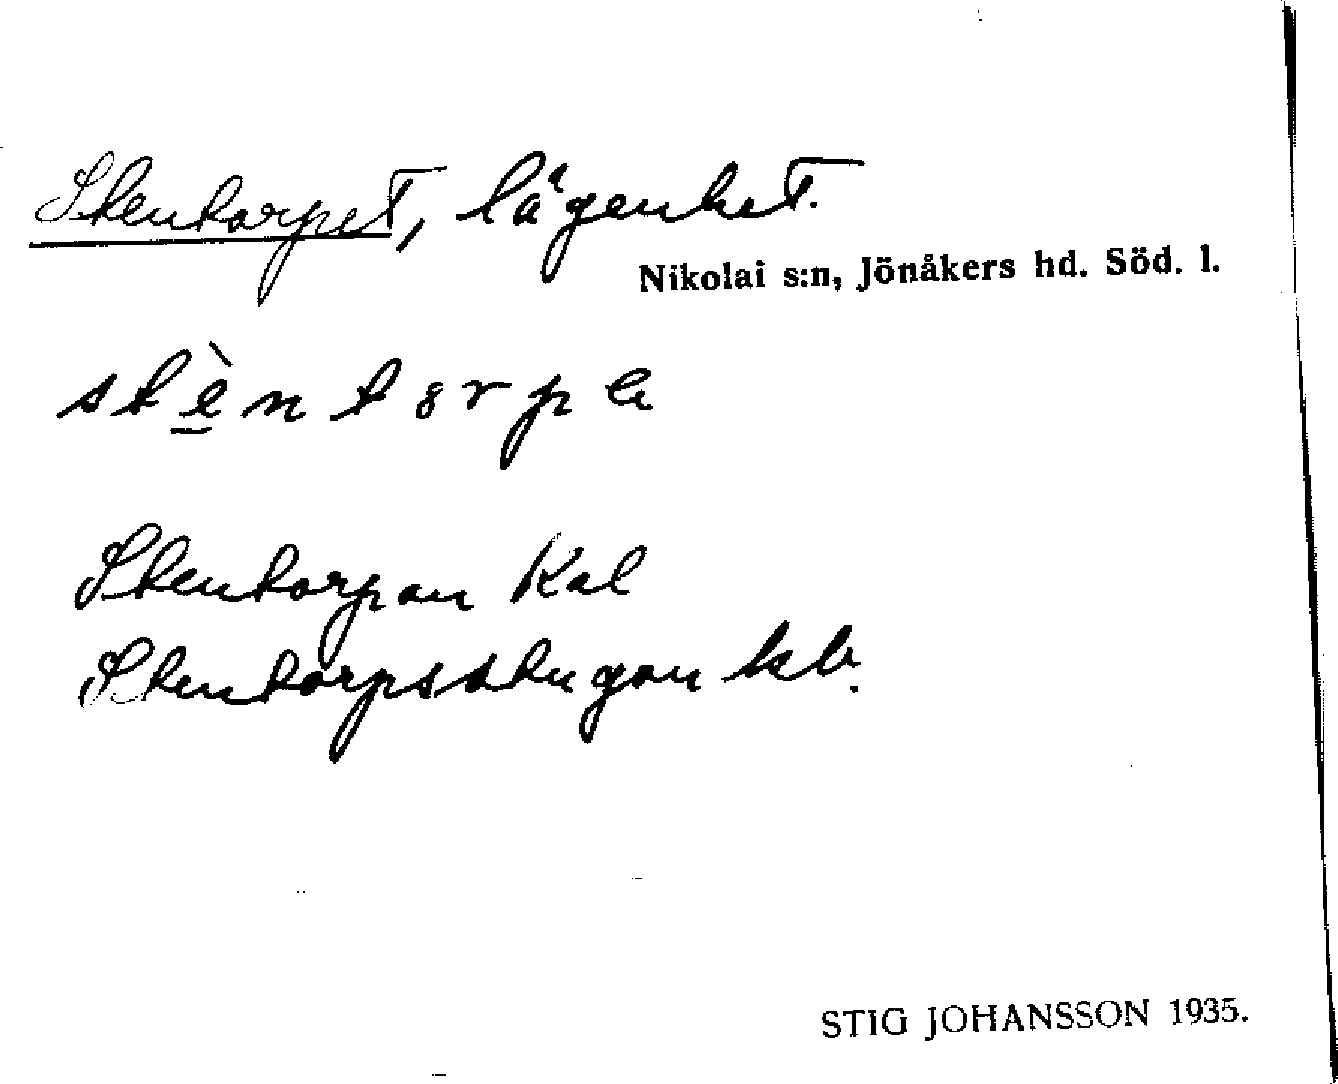 Stentorpet, lägenhet.
Nikolai s:n, Jönåkers hd. Söd. l.
stè̱ntorpe
Stentorpan Kal
Stentorpsstugan kb.
STIG JOHANSSON 1935.